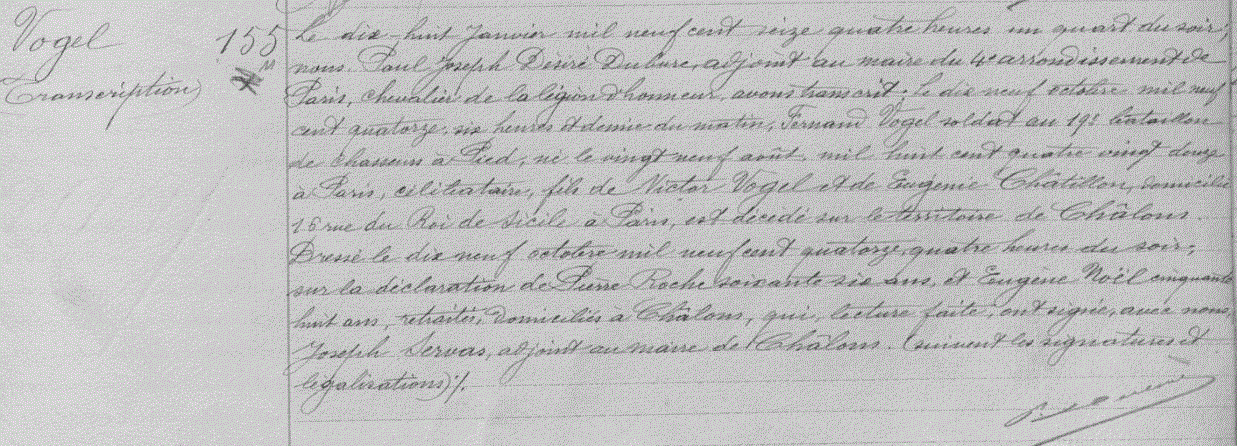 Vogel
155
Transcription
Le dix-huit Janvier mil neuf cent seize quatre heures un quart du soir,
nous Paul Joseph Désiré Dubure, adjoint au maire du 4e arrondissement de
Paris, chevalier de la légion d'honneur, avons transcrit : Le dix neuf octobre mil neuf
cent quatorze, six heures et demie du matin, Fernand Vogel soldat au 19e bataillon
de chasseurs à Pied, né le vingt neuf août mil huit cent quatre vingt douze
à Paris, célibataire, fils de Victor Vogel et de Eugénie Châtillon, domicilié
16 rue du Roi de Sicile à Paris, est décédé sur le territoire de Châlons.
Dressé le dix neuf octobre mil neuf cent quatorze, quatre heures du soir,
sur la déclaration de Pierre Roche soixante six ans, et Eugène Noël cinquante
huit ans, retraités, domiciliés à Châlons, qui, lecture faite, ont signé, avec nous,
Joseph Servas, adjoint au maire de Châlons. (suivent les signatures et
légalisations)/.